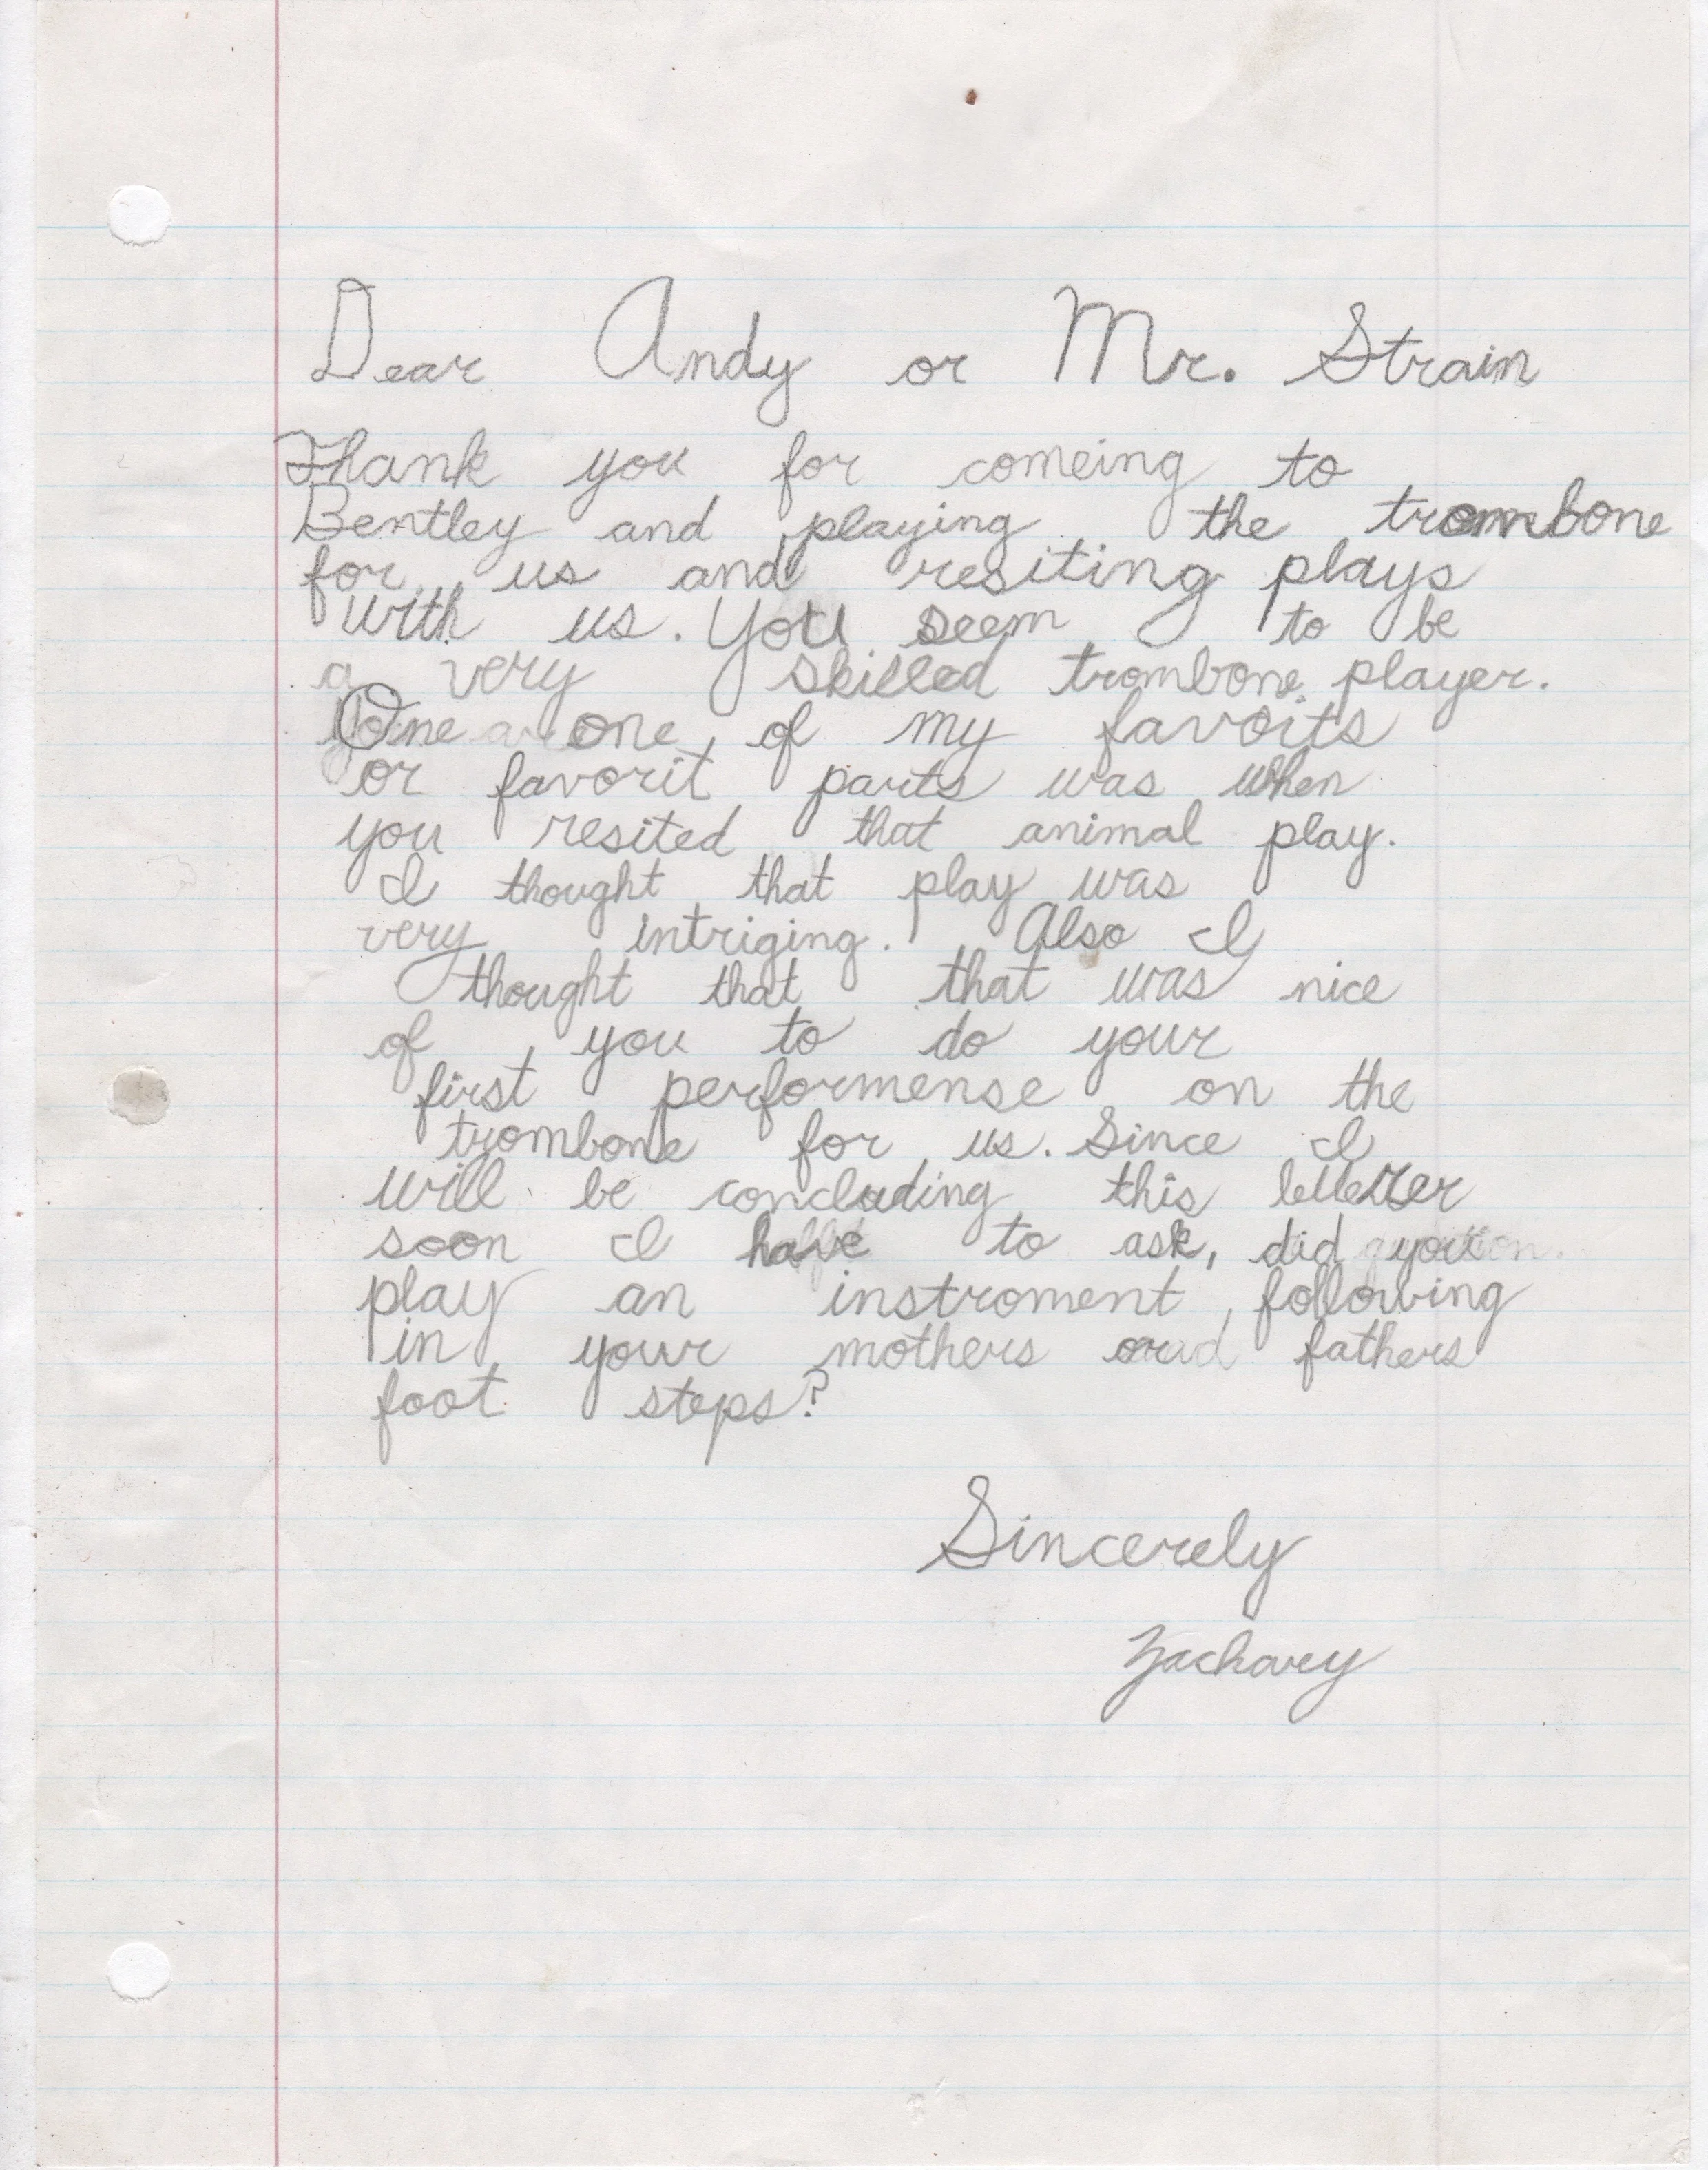 Dear Andy or Mr. Strain
Thank you for comeing to
Bentley and playing the trombone
for us and resiting plays
with us. You seem to be
a very skilled trombone player.
One one of my favorits
or favorit parts was when
you resited that animal play.
I thought that play was
very intriging. Also I
thought that that was nice
of you to do your
first performense on the
trombone for us. Since I
will be concluding this letter
soon I have to ask, did you
play an instroment, following
in your mothers or fathers
foot steps?
Sincerely
Zachary